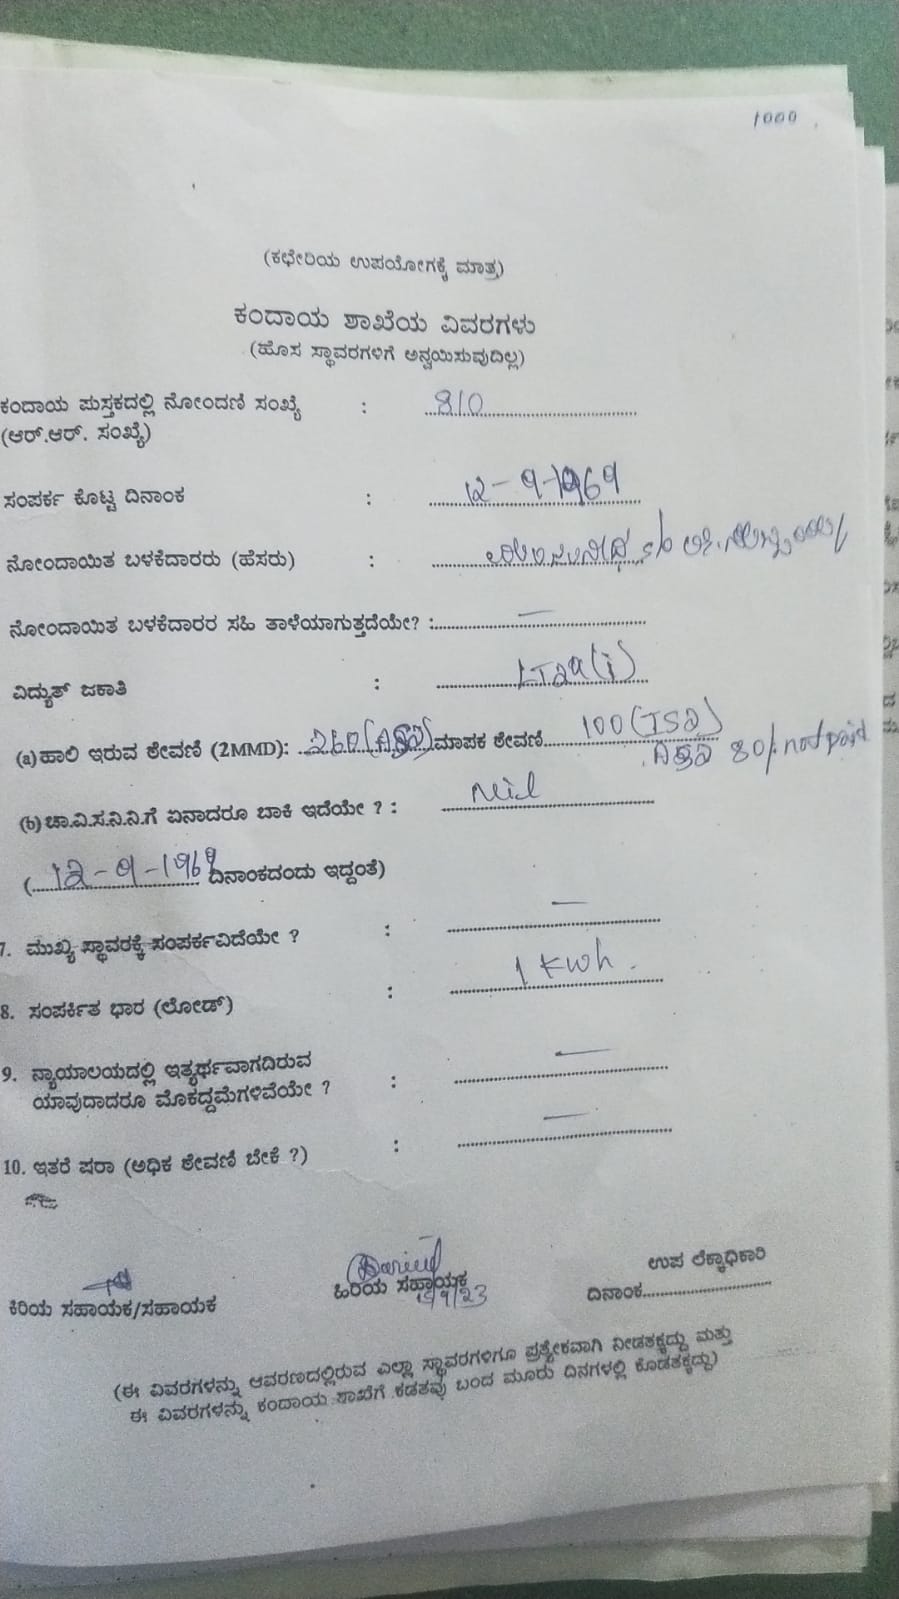 1000
(ಕಛೇರಿಯ ಉಪಯೋಗಕ್ಕೆ ಮಾತ್ರ)
ಕಂದಾಯ ಶಾಖೆಯ ವಿವರಗಳು
(ಹೊಸ ಸ್ಥಾವರಗಳಿಗೆ ಅನ್ವಯಿಸುವುದಿಲ್ಲ)
ಕಂದಾಯ ಪುಸ್ತಕದಲ್ಲಿ ನೋಂದಣಿ ಸಂಖ್ಯೆ : 810
(ಆರ್.ಆರ್. ಸಂಖ್ಯೆ)
ಸಂಪರ್ಕ ಕೊಟ್ಟ ದಿನಾಂಕ : 12-9-1969
ನೋಂದಾಯಿತ ಬಳಕೆದಾರರು (ಹೆಸರು) : s/o
ನೋಂದಾಯಿತ ಬಳಕೆದಾರರ ಸಹಿ ತಾಳೆಯಾಗುತ್ತದೆಯೇ? : —
ವಿದ್ಯುತ್ ಜಕಾತಿ : LT2a(i)
(a) ಹಾಲಿ ಇರುವ ಠೇವಣಿ (2MMD): 260 ಮಾಪಕ ಠೇವಣಿ 100 (ISD)
80/. not paid
(b) ಚಾ.ವಿ.ಸ.ನಿ.ನಿ.ಗೆ ಏನಾದರೂ ಬಾಕಿ ಇದೆಯೇ ? : Nil
(12-9-1969 ದಿನಾಂಕದಂದು ಇದ್ದಂತೆ)
7. ಮುಖ್ಯ ಸ್ಥಾವರಕ್ಕೆ ಸಂಪರ್ಕವಿದೆಯೇ ? : —
8. ಸಂಪರ್ಕಿತ ಭಾರ (ಲೋಡ್) : 1 Kwh.
9. ನ್ಯಾಯಾಲಯದಲ್ಲಿ ಇತ್ಯರ್ಥವಾಗದಿರುವ
ಯಾವುದಾದರೂ ಮೊಕದ್ದಮೆಗಳಿವೆಯೇ ? : —
10. ಇತರೆ ಷರಾ (ಅಧಿಕ ಠೇವಣಿ ಬೇಕೆ ?) : —
ಕಿರಿಯ ಸಹಾಯಕ/ಸಹಾಯಕ
ಹಿರಿಯ ಸಹಾಯಕ
ಉಪ ಲೆಕ್ಕಾಧಿಕಾರಿ
ದಿನಾಂಕ
(ಈ ವಿವರಗಳನ್ನು ಆವರಣದಲ್ಲಿರುವ ಎಲ್ಲಾ ಸ್ಥಾವರಗಳಿಗೂ ಪ್ರತ್ಯೇಕವಾಗಿ ನೀಡತಕ್ಕದ್ದು ಮತ್ತು
ಈ ವಿವರಗಳನ್ನು ಕಂದಾಯ ಶಾಖೆಗೆ ಕಡತವು ಬಂದ ಮೂರು ದಿನಗಳಲ್ಲಿ ಕೊಡತಕ್ಕದ್ದು)